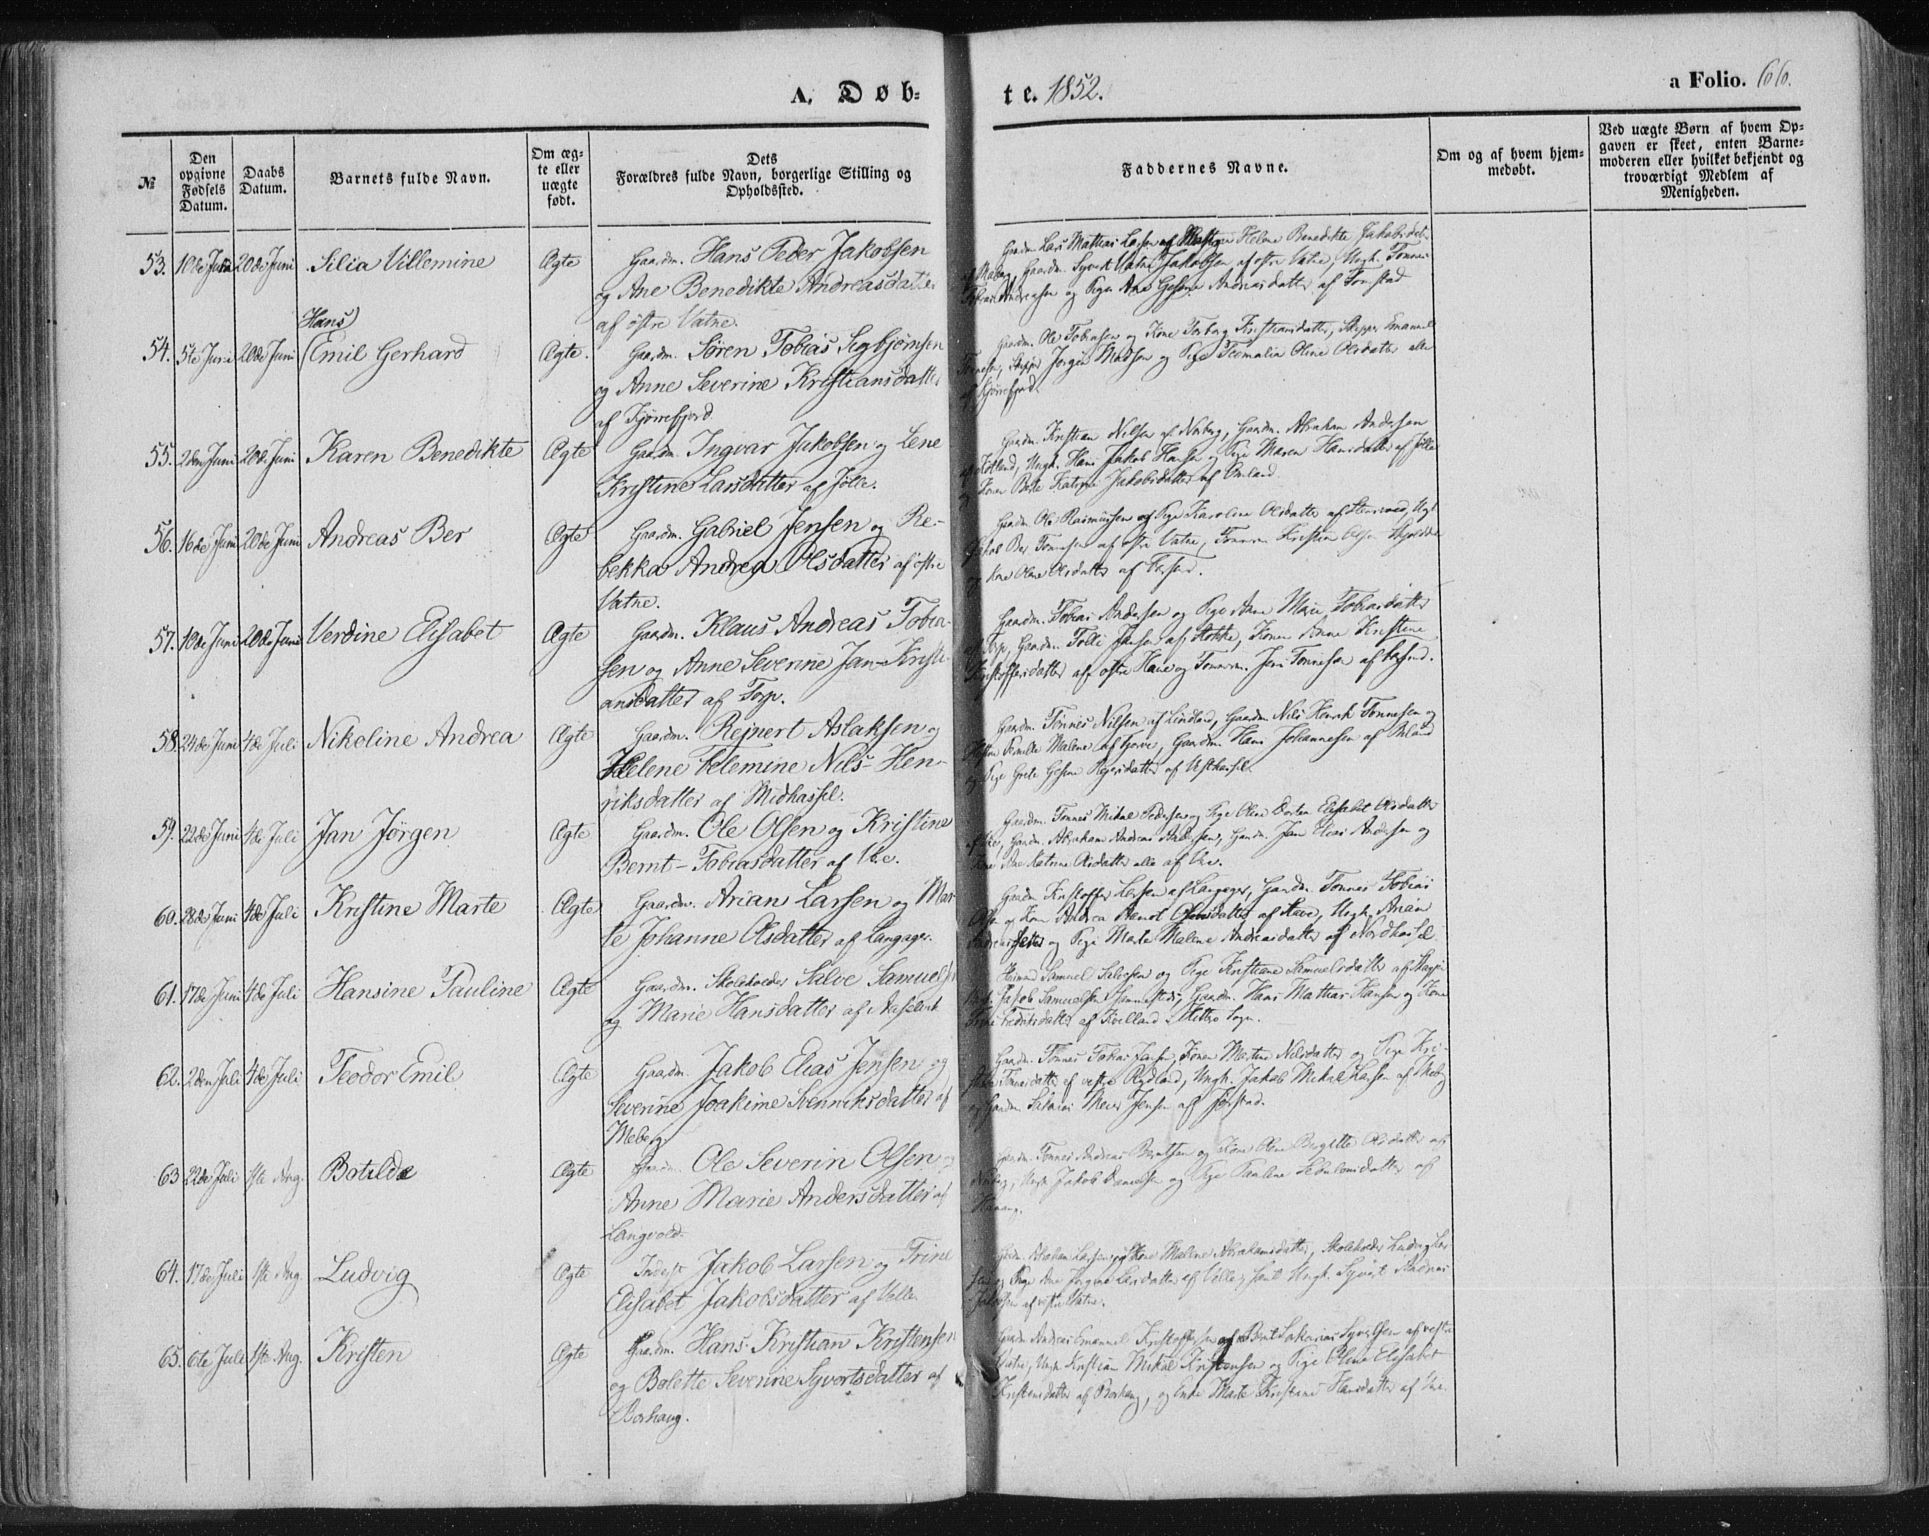 A. Døb-
te. 1852.
a Folio. 66.
№
Den opgivne Fødsels Datum.
Daabs Datum.
Barnets fulde Navn.
Om ægte eller uægte født.
Dets Forældres fulde Navn, borgerlige Stilling og Opholdssted.
Faddernes Navne.
Om og af hvem hjemmedøbt.
Ved uægte Børn af hvem Opgaven er skeet, enten Barnemoderen eller hvilket bekjendt og troværdigt Medlem af Menigheden.
53. 10de Juni 20de Juni Silia Villemine Ægte Gaardm. Hans Peder Jakobsen
og Ane Benedikte Andreasdatter
af østre Vatne.
Gaardm. Lars Mathias Larsen Helene Benedikte Jakobsdat-
Gaardm. Syvert Vatne Jakobsen af østre Vatne, Ungk. Tønnes
Andreasen og Pige Ane Gesine Andreasdatter af Tomstad
54. 5te Juni 20de Juni Hans Emil Gerhard Ægte. Gaardm. Søren Tobias Sigbjørnsen
og Anne Severine Kristiansdatter
af Kjørrefjord
Gaardm. Ole Tobiasen og Kone Torborg Kristiansdatter, Skipper Emanuel
Tønnesen, Skipper Jørgen Madsen og Pige Tomalia Oline Olsdatter alle
af Kjørrefjord.
55. 2den Juni 20de Juni Karen Benedikte Ægte Gaardm. Ingvar Jakobsen og Lene
Kristine Larsdatter af Jølle.
Gaardm. Kristian Nilsen af Norberg, Gaardm. Abraham Andersen
Ungk. Hans Jakob Hansen og Pige Maren Hansdatter af Jølle
og Kone Berte Katrine Jakobsdatter af Omland
56. 16de Juni 20de Juni Andreas Ber Ægte Gaardm. Gabriel Jensen og Re-
bekka Andrea Olsdatter af østre
Vatne.
Gaardm. Ole Rasmussen og Pige Karoline Olsdatter af Ungk.
Jakob Ber Tønnesen af østre Vatne, Kristian Olsen
og Kone Oline Olsdatter af Farsund.
57. 10de Juni 20de Juni Verdine Elisabet Ægte Gaardm. Klaus Andreas Tobia-
sen og Anne Severine Jan-Kristi-
ansdatter af Torp.
Gaardm. Tobias Andersen og Pige Anne Marie Tobiasdatter
af Torp, Gaardm. Tolli Jansen af Stokke, Konen Anne Kristine
Kristoffersdatter af østre Haue og Tømmerm. Jens Tønnesen af Farsund.
58. 24de Juni 4de Juli Nikoline Andrea Ægte Gaardm. Rejnert Aslaksen og
Helene Telemine Nils-Hen-
riksdatter af Midhassel.
Gaardm. Tønnes Nilsen af Lindland, Gaardm. Nils Henrik Tønnesen og
Malene af Tjørve, Gaardm. Hans Johannesen af
og Pige Grete Gesine Rejersdatter af Vesthassel.
59. 22de Juni 4de Juli Jan Jørgen Ægte Gaardm. Ole Olsen og Kristine
Bernt-Tobiasdatter af Ure.
Gaardm. Tønnes Mikal Pedersen og Pige Oline Dorten Elisabet Olsdatter
af Ure, Gaardm. Abraham Andreas Andersen, Gaardm. Jan Elias Andersen og
Kone Ane Katrine Olsdatter alle af Ure.
60. 28de Juni 4de Juli Kristine Marte Ægte Gaardm. Arian Larsen og Mar-
te Johanne Olsdatter af Langager.
Gaardm. Kristoffer Larsen af Langager, Gaardm. Tønnes Tobias
Olsen og Kone Andrea af Haue, Ungk. Arian
Andreassen og Pige Marte Malene Andreasdatter af Nordhassel
61. 17de Juni 4de Juli Hansine Pauline Ægte Gaardm. Skoleholder Salve Samuels.
og Marie Hansdatter af
Samuel Salvesen og Pige Kristiane Samuelsdatter af
Jakob Samuelsen Gaardm. Hans Mathias Hansen og Kone
Trine Fredriksdatter af Kvelland i Hitterø Sogn.
62. 2den Juli 4de Juli Teodor Emil Ægte Gaardm. Jakob Elias Jensen og
Severine Joakime Svenniksdatter af
Meberg
Gaardm. Tønnes Tobias Jansen, Konen Martine Nilsdatter og Pige Kri-
stine af vestre Rydland, Ungk. Jakob Mikal Hansen af Meberg
og Gaardm. Salomon Meier Jensen af Jørstad.
63 22de Juli 1ste Aug. Botilde Ægte Gaardm. Ole Severin Olsen og
Anne Marie Andersdatter af
Langvold.
Gaardm. Tønnes Andreas Berntsen og Kone Oline Birgitte Olsdatter af
Ungk. Jakob Danielsen og Pige Pauline Sebulonsdatter af
Hanang.
64. 17de Juli 1ste Aug. Ludvig Ægte Inderst Jakob Larsen og Trine
Elisabet Jakobsdatter af Velle
Gaardm. Abraham Larsen og Kone Malene Abrahamsdatter, Skoleholder Ludvig Lar-
sen og Pige Ane Jørgine Larsdatter af Velle, samt Ungk. Syvert Andreas
Jakobsen af vestre Vatne.
65. 6te Juli 1ste Aug. Kristen Ægte Gaardm. Hans Kristian Kristensen
og Bolette Severine Syvertsdatter af
Borhaug.
Gaardm. Andreas Emanuel Kristoffersen og Bernt Sakarias Syvertsen af vestre
Vatne, Ungk. Kristian Mikal Kristensen og Pige Oline Elisabet
Kristensdatter af Borhaug, og Enke Marte Kristine Hansdatter af Ure.